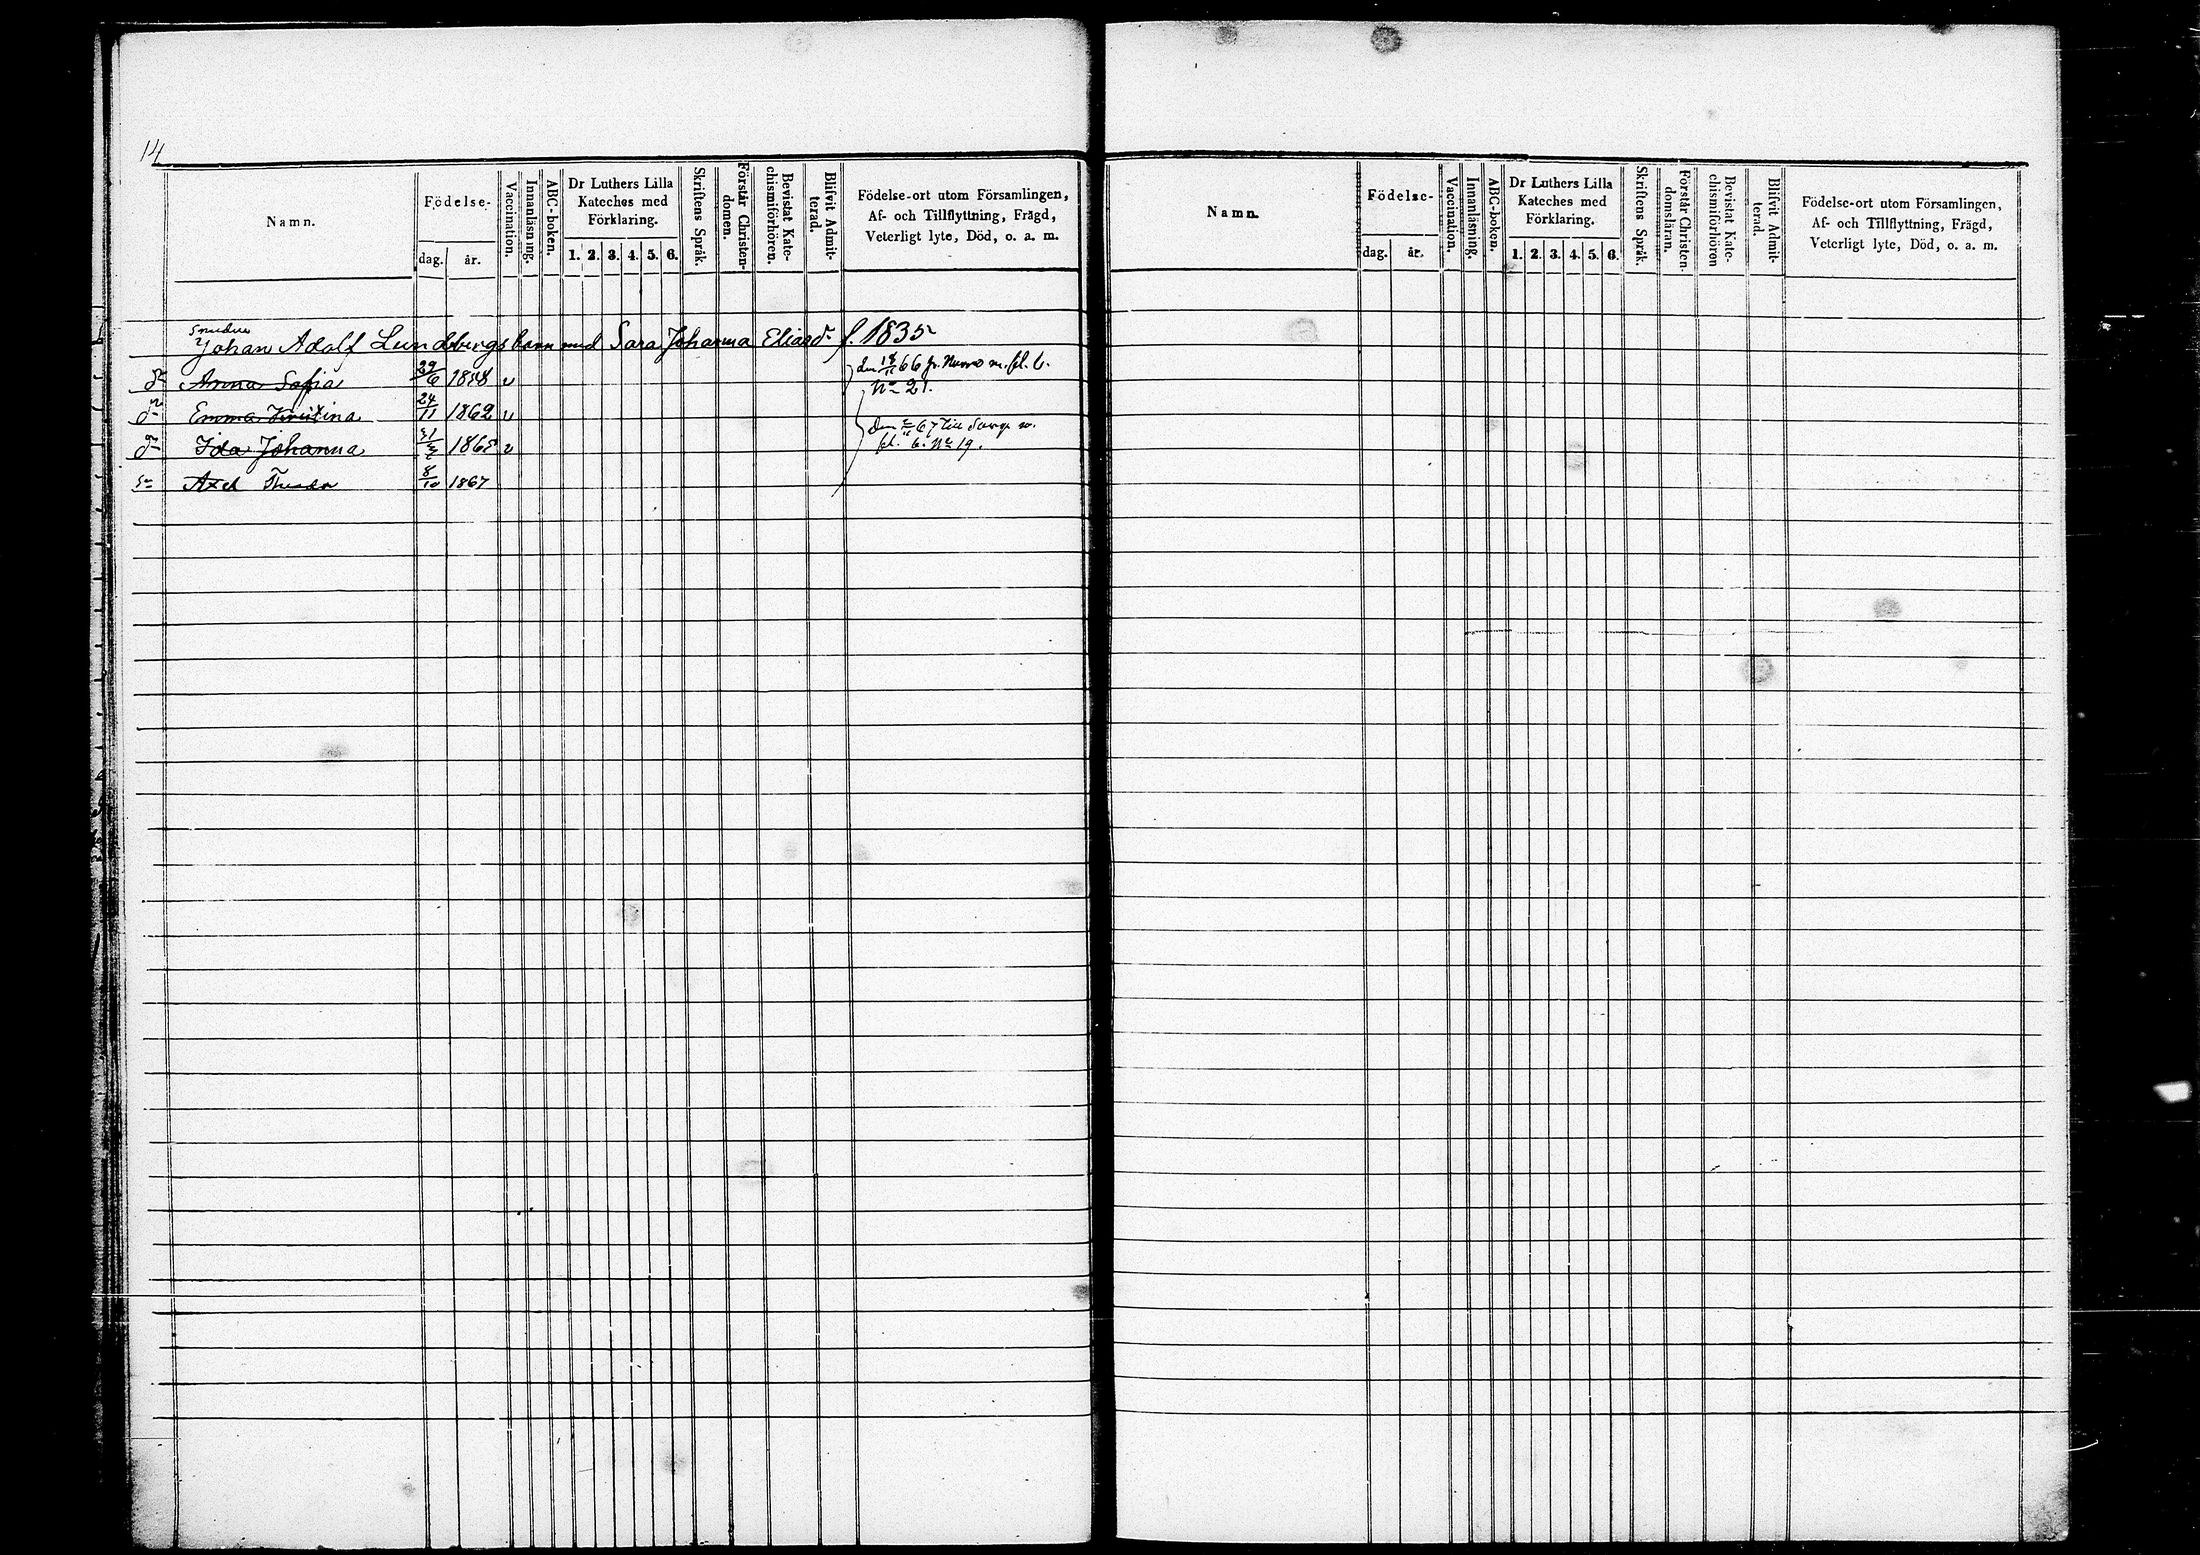 14
Namn. Födelse- Vaccination. Innanläsning. ABC-boken. Dr Luthers Lilla Kateches med Förklaring. Skriftens Språk. Förstår Christendomen. Bevistat Katechismiförhören. Blifvit Admitterad. Födelse-ort utom Församlingen,
Af- och Tillflyttning, Frägd,
Veterligt lyte, Död, o. a. m.
dag. år. 1. 2. 3. 4. 5. 6.
Johan Adolf Lundbergs barn med Sara Johanna Eliasdr f. 1835
dr Anna Sofia 29/6 1858 v
den 18/11 66 fr. m. fl. b.
No 21.
dr Emma Kristina 24/11 1862 v
den 67 till m.
fl. b. No 19.
dr Ida Johanna 1865 v
sn Axel Theodor 8/10 1867
Namn. Födelse- Vaccination. Innanläsning. ABC-boken. Dr Luthers Lilla Kateches med Förklaring. Skriftens Språk. Förstår Christendomsläran. Bevistat Katechismiförhören Blifvit Admitterad. Födelse-ort utom Församlingen,
Af- och Tillflyttning, Frägd,
Veterligt lyte, Död, o. a. m.
dag. år. 1. 2. 3. 4. 5. 6.